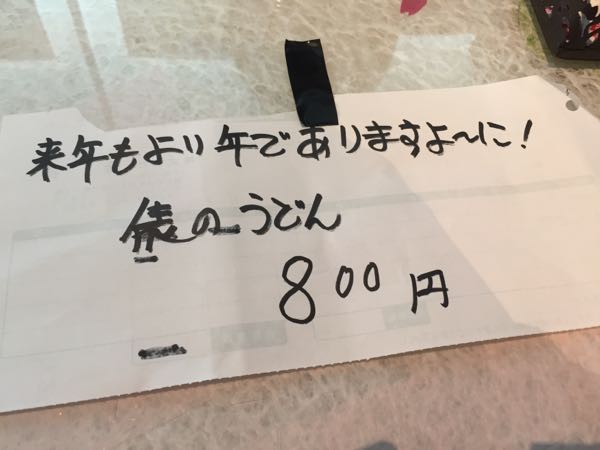 来年もより年でありますよ〜に！
俵のうどん
800円